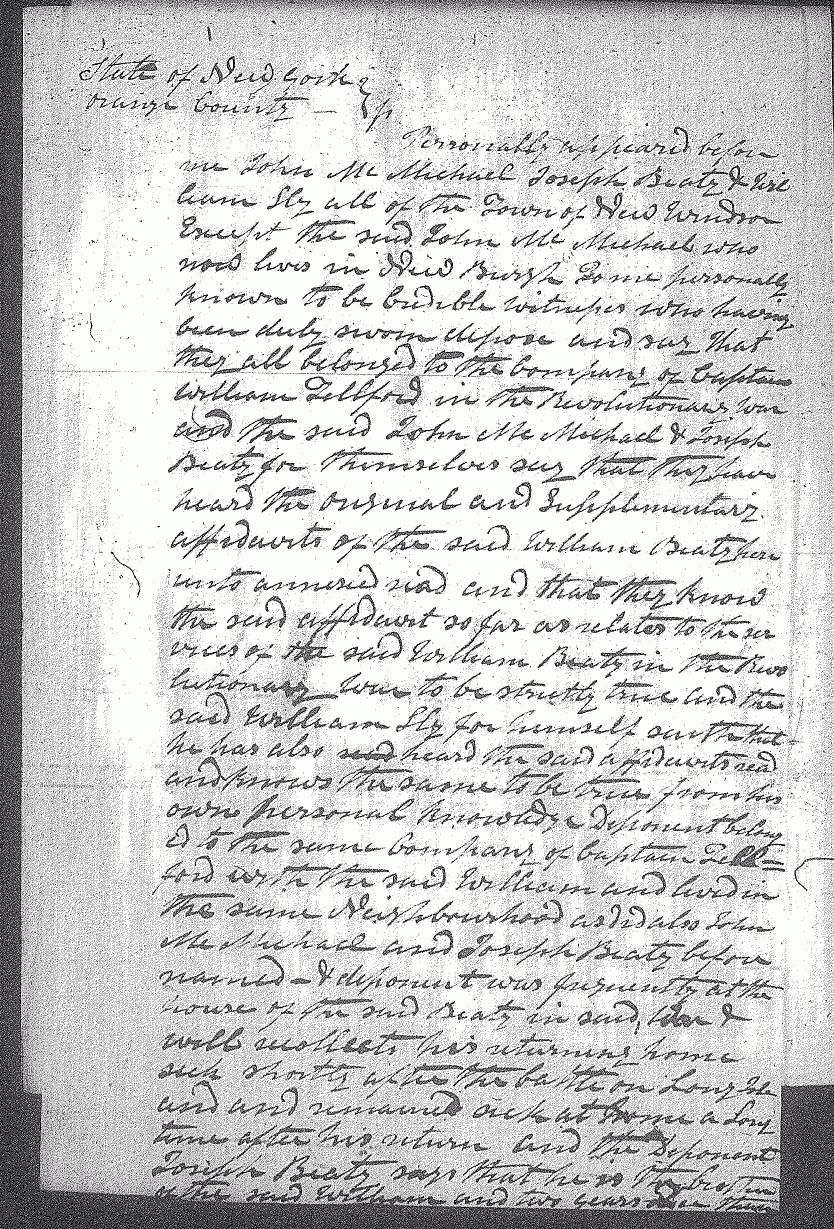 State of New York }
Orange County — } ss
Personally appeared before
me John Mc Michael Joseph Beaty & Wil
liam Sly all of the Town of New Windsor
Except the said John Mc Michael who
now lives in New Burgh to me personally
known to be credible witnesses who having
been duly sworn depose and say that
they all belonged to the Company of Captain
William Tellford in the Revolutionary War
and the said John Mc Michael & Joseph
Beaty for themselves say that they have
heard the original and Supplementary
affidavits of the said William Beaty here
unto annexed read and that they know
the said affidavit so far as relates to the ser
vices of the said William Beaty in the Revo
lutionary War to be strictly true and the
said William Sly for himself saith that
he has also read heard the said affidavits read
and knows the same to be true from his
own personal knowledge Deponent belong
ed to the same Company of Captain Tell=
ford with the said William and lived in
the same Neighbourhood as did also John
Mc Michael and Joseph Beaty before
named — & deponent was frequently at the
house of the said Beaty in said War &
well recollects his returning home
sick shortly after the battle on Long Isle
and and remained sick at home a Long
time after his return and the Deponent
Joseph Beaty says that he is the brother
of the said William and two years